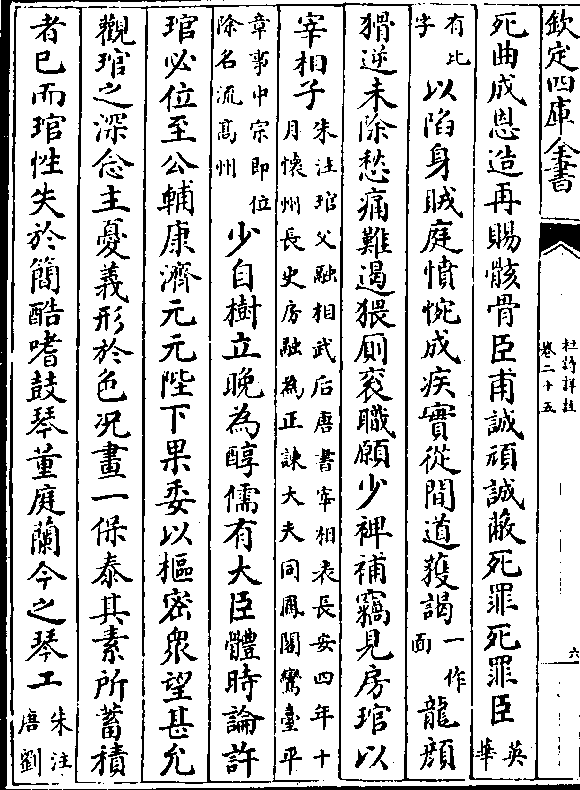 欽定四庫全書
杜詩詳註
卷二十五
六
死曲成恩造再賜骸骨臣甫誠頑誠蔽死罪死罪臣英華
有比字以陷身賊庭憤惋成疾實從間道獲謁一作面龍顔
猾逆未除愁痛難遏猥厠衮職願少裨補竊見房琯以
宰相子朱注琯父融相武后唐書宰相表長安四年十月懷州長史房融為正諫大夫同鳳閣鸞臺平
章事中宗即位除名流髙州少自樹立晚為醇儒有大臣體時論許
琯必位至公輔康濟元元陛下果委以樞密衆望甚允
觀琯之深念主憂義形於色况畫一保泰其素所蓄積
者已而琯性失於簡酷嗜鼓琴董庭蘭今之琴工朱注唐劉